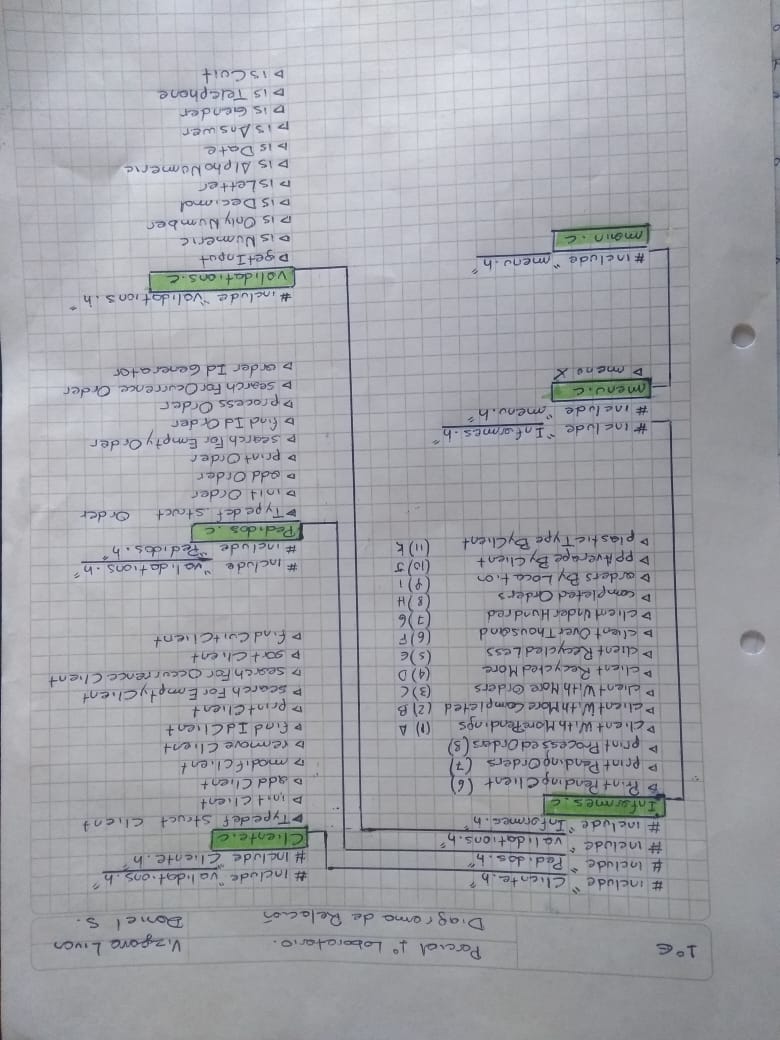 1º E
Parcial 1º Laboratorio.
Diagrama de Relación
Vizgarra Livas
Daniel S.
# include "Cliente.h"
# include "Pedidos.h"
# include "validations.h"
# include "Informes.h"
Informes.c
▷ PrintPendingClient (6)
▷ printPendingOrders (7)
▷ printProcessedOrders (8)
▷ clientWithMorePendings (1) A
▷ clientWithMoreCompleted (2) B
▷ clientWithMoreOrders (3) C
▷ clientRecycledMore (4) D
▷ clientRecycledLess (5) E
▷ clientOverThousand (6) F
▷ clientUnderHundred (7) G
▷ completedOrders (8) H
▷ ordersByLocation (9) I
▷ ppAverageByClient (10) J
▷ plasticTypeByClient (11) K
# include "Informes.h"
# include "menu.h"
menu.c
▷ menu X
# include "menu.h"
main.c
# include "validations.h"
# include "Cliente.h"
Cliente.c
▷ Typedef struct Client
▷ initClient
▷ addClient
▷ modifClient
▷ removeClient
▷ findIdClient
▷ printClient
▷ searchForEmptyClient
▷ searchForOccurrenceClient
▷ sortClient
▷ findCuitClient
# include "validations.h"
# include "Pedidos.h"
Pedidos.c
▷ Typedef struct Order
▷ init Order
▷ add Order
▷ print Order
▷ search For Empty Order
▷ find Id Order
▷ process Order
▷ search For Ocurrence Order
▷ order Id Generator
# include "validations.h"
validations.c
▷ getInput
▷ isNumeric
▷ is Only Number
▷ is Decimal
▷ isLetter
▷ is AlphaNumeric
▷ is Date
▷ is Answer
▷ is Gender
▷ is Telephone
▷ isCuit